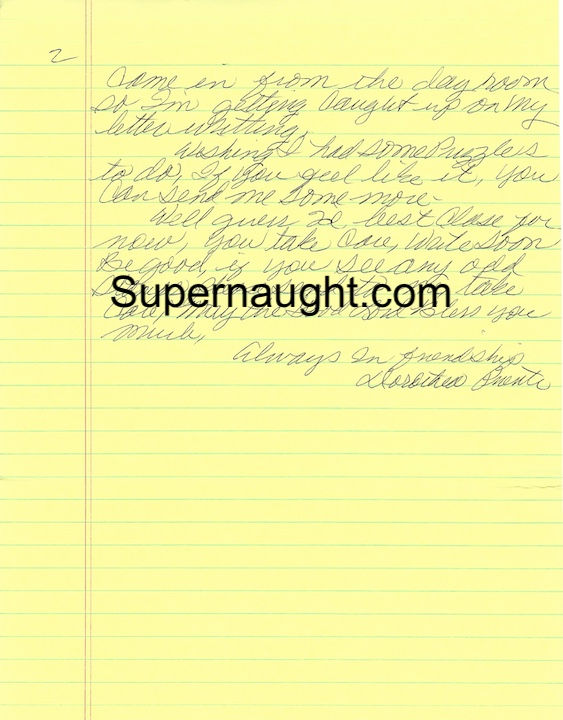 2
Came in from the day room
so I'm getting Caught up on my
letter whitting.
Wishing I had some Puzzles
to do, If you feel like it, you
Can send me some more-
Well guess I'd best Close for
now, you take Care, Write Soon
Be good, if you see any odd
Supernaught.com
take
Care, May the Good Lord Bless you
Much,
Always In friendship
Dorothea Puente